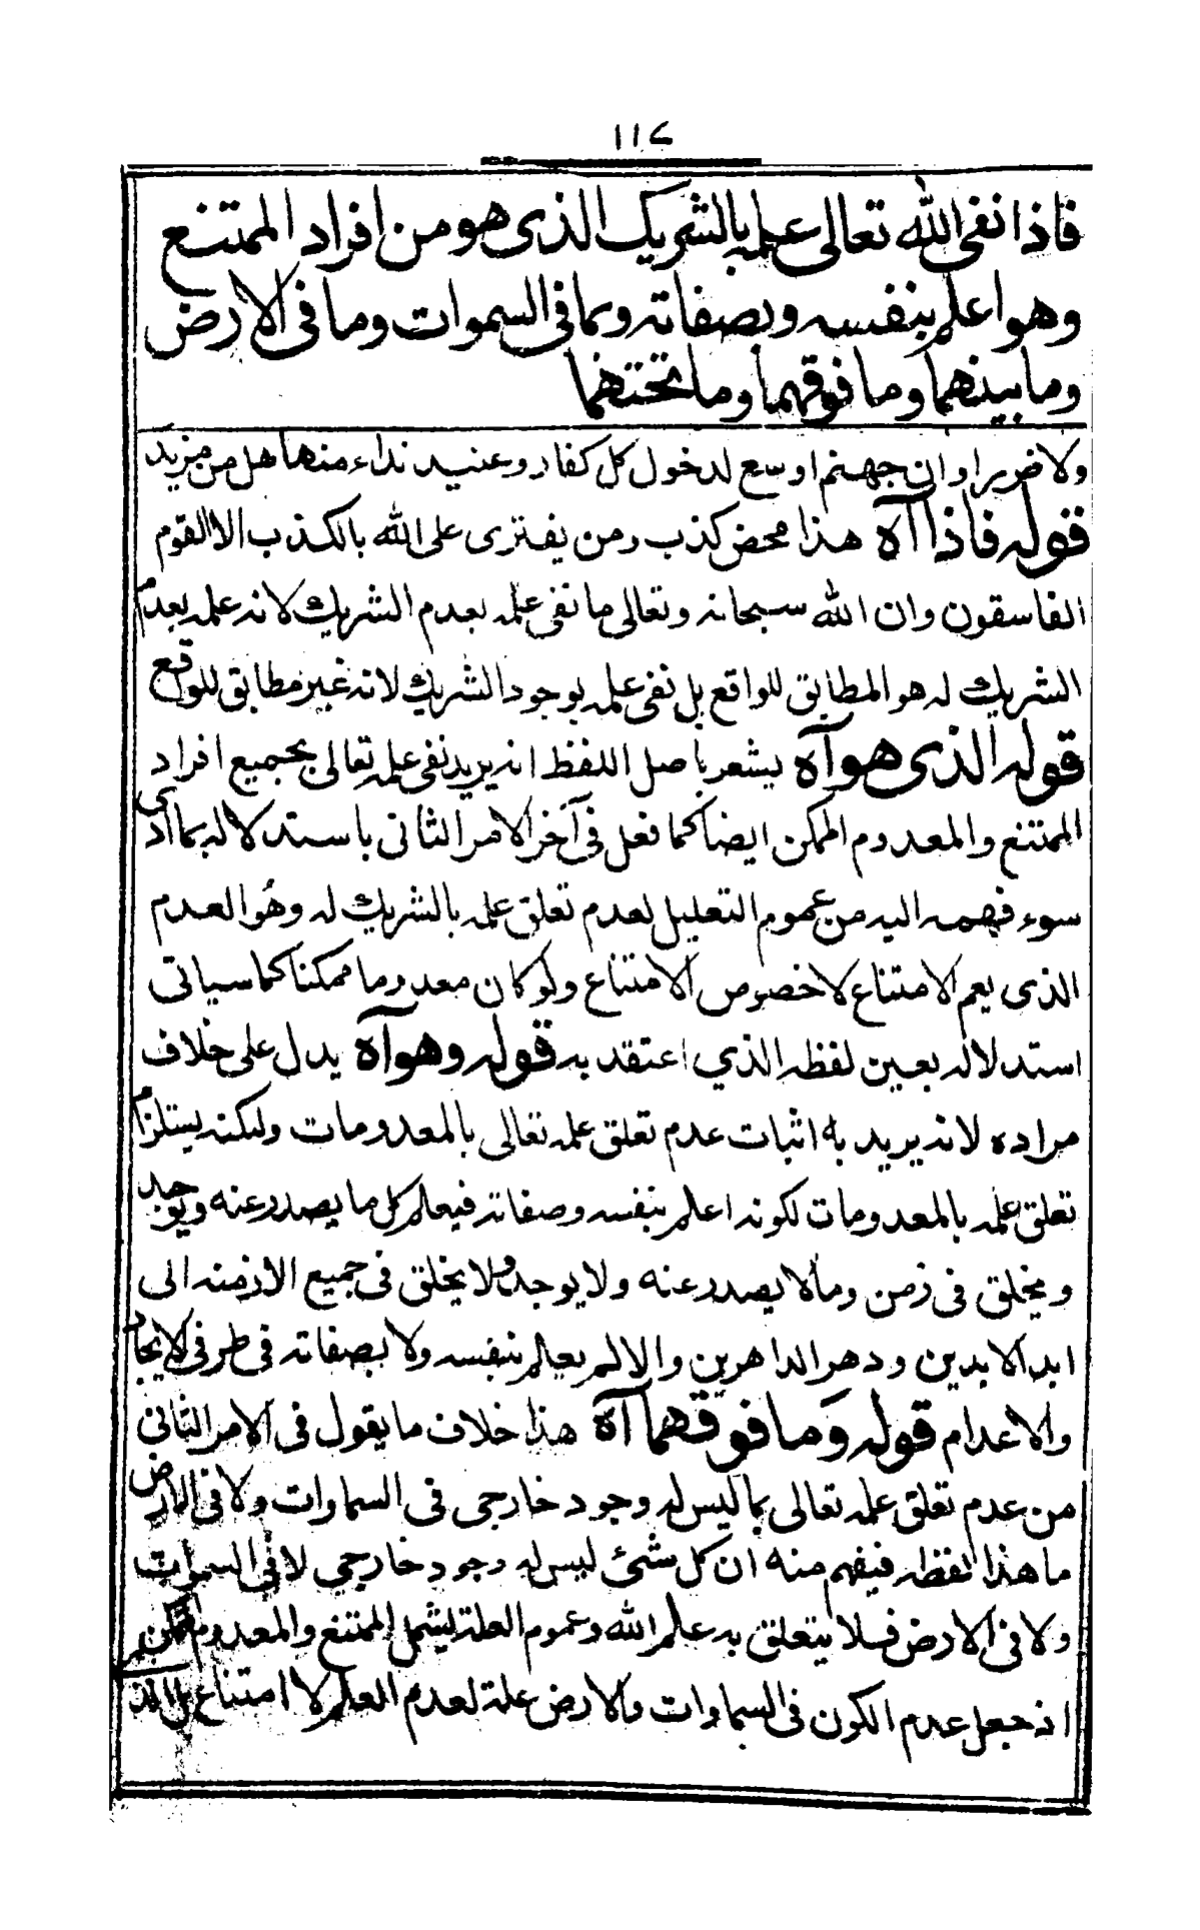 ١١٤
فاذا نفى الله تعالى علمه بالشريك الذى هو من افراد الممتنع
وهو اعلم بنفسه وبصفاته وبما فى السموات وما فى الارض
وما بينهما وما فوقهما وما تحتهما
ولا ضريرا وان جهنم اوسع لدخول كل كفار وعنيد نداء منها هل من مزيد
قوله فاذا آه هذا محض كذب ومن يفترى على الله بالكذب الا القوم
الفاسقون وان الله سبحانه وتعالى ما نفى علمه بعدم الشريك لانه علمه بعدم
الشريك له هو المطابق للواقع بل نفى علمه بوجود الشريك لانه غير مطابق للواقع
قوله الذى هو آه يشعر باصل اللفظ انه يريد نفى علمه تعالى بجميع افراد
الممتنع والمعدوم الممكن ايضا كما فعل فى آخر الامر الثانى باستدلاله بما ادى
سوء فهمه اليه من عموم التعليل لعدم تعلق علمه بالشريك له وهو العدم
الذى يعم الامتناع لا خصوص الامتناع ولو كان معدوما ممكنا كما سياتى
استدلاله بعين لفظه الذي اعتقد به قوله وهو آه يدل على خلاف
مراده لانه يريد به اثبات عدم تعلق علمه تعالى بالمعدومات ولكنه يستلزم
تعلق علمه بالمعدومات لكونه اعلم بنفسه وصفاته فيعلم كل ما يصدر عنه ويوجد
ويخلق فى زمن وما لا يصدر عنه ولا يوجد ولا يخلق فى جميع الازمنه الى
ابد الابدين ودهر الداهرين والا لم يعلم بنفسه ولا بصفاته فى طرفى الايجاد
والاعدام قوله وما فوقهما آه هذا خلاف ما يقول فى الامر الثانى
من عدم تعلق علمه تعالى بما ليس له وجود خارجى فى السماوات ولا فى الارض
ما هذا لفظه فيفهم منه ان كل شئ ليس له وجود خارجي لا فى السموات
ولا فى الارض فلا يتعلق به علم الله وعموم العلة يشمل الممتنع والمعدوم الممكن
اذ جعل عدم الكون فى السماوات والارض علة لعدم العلم لا امتناع